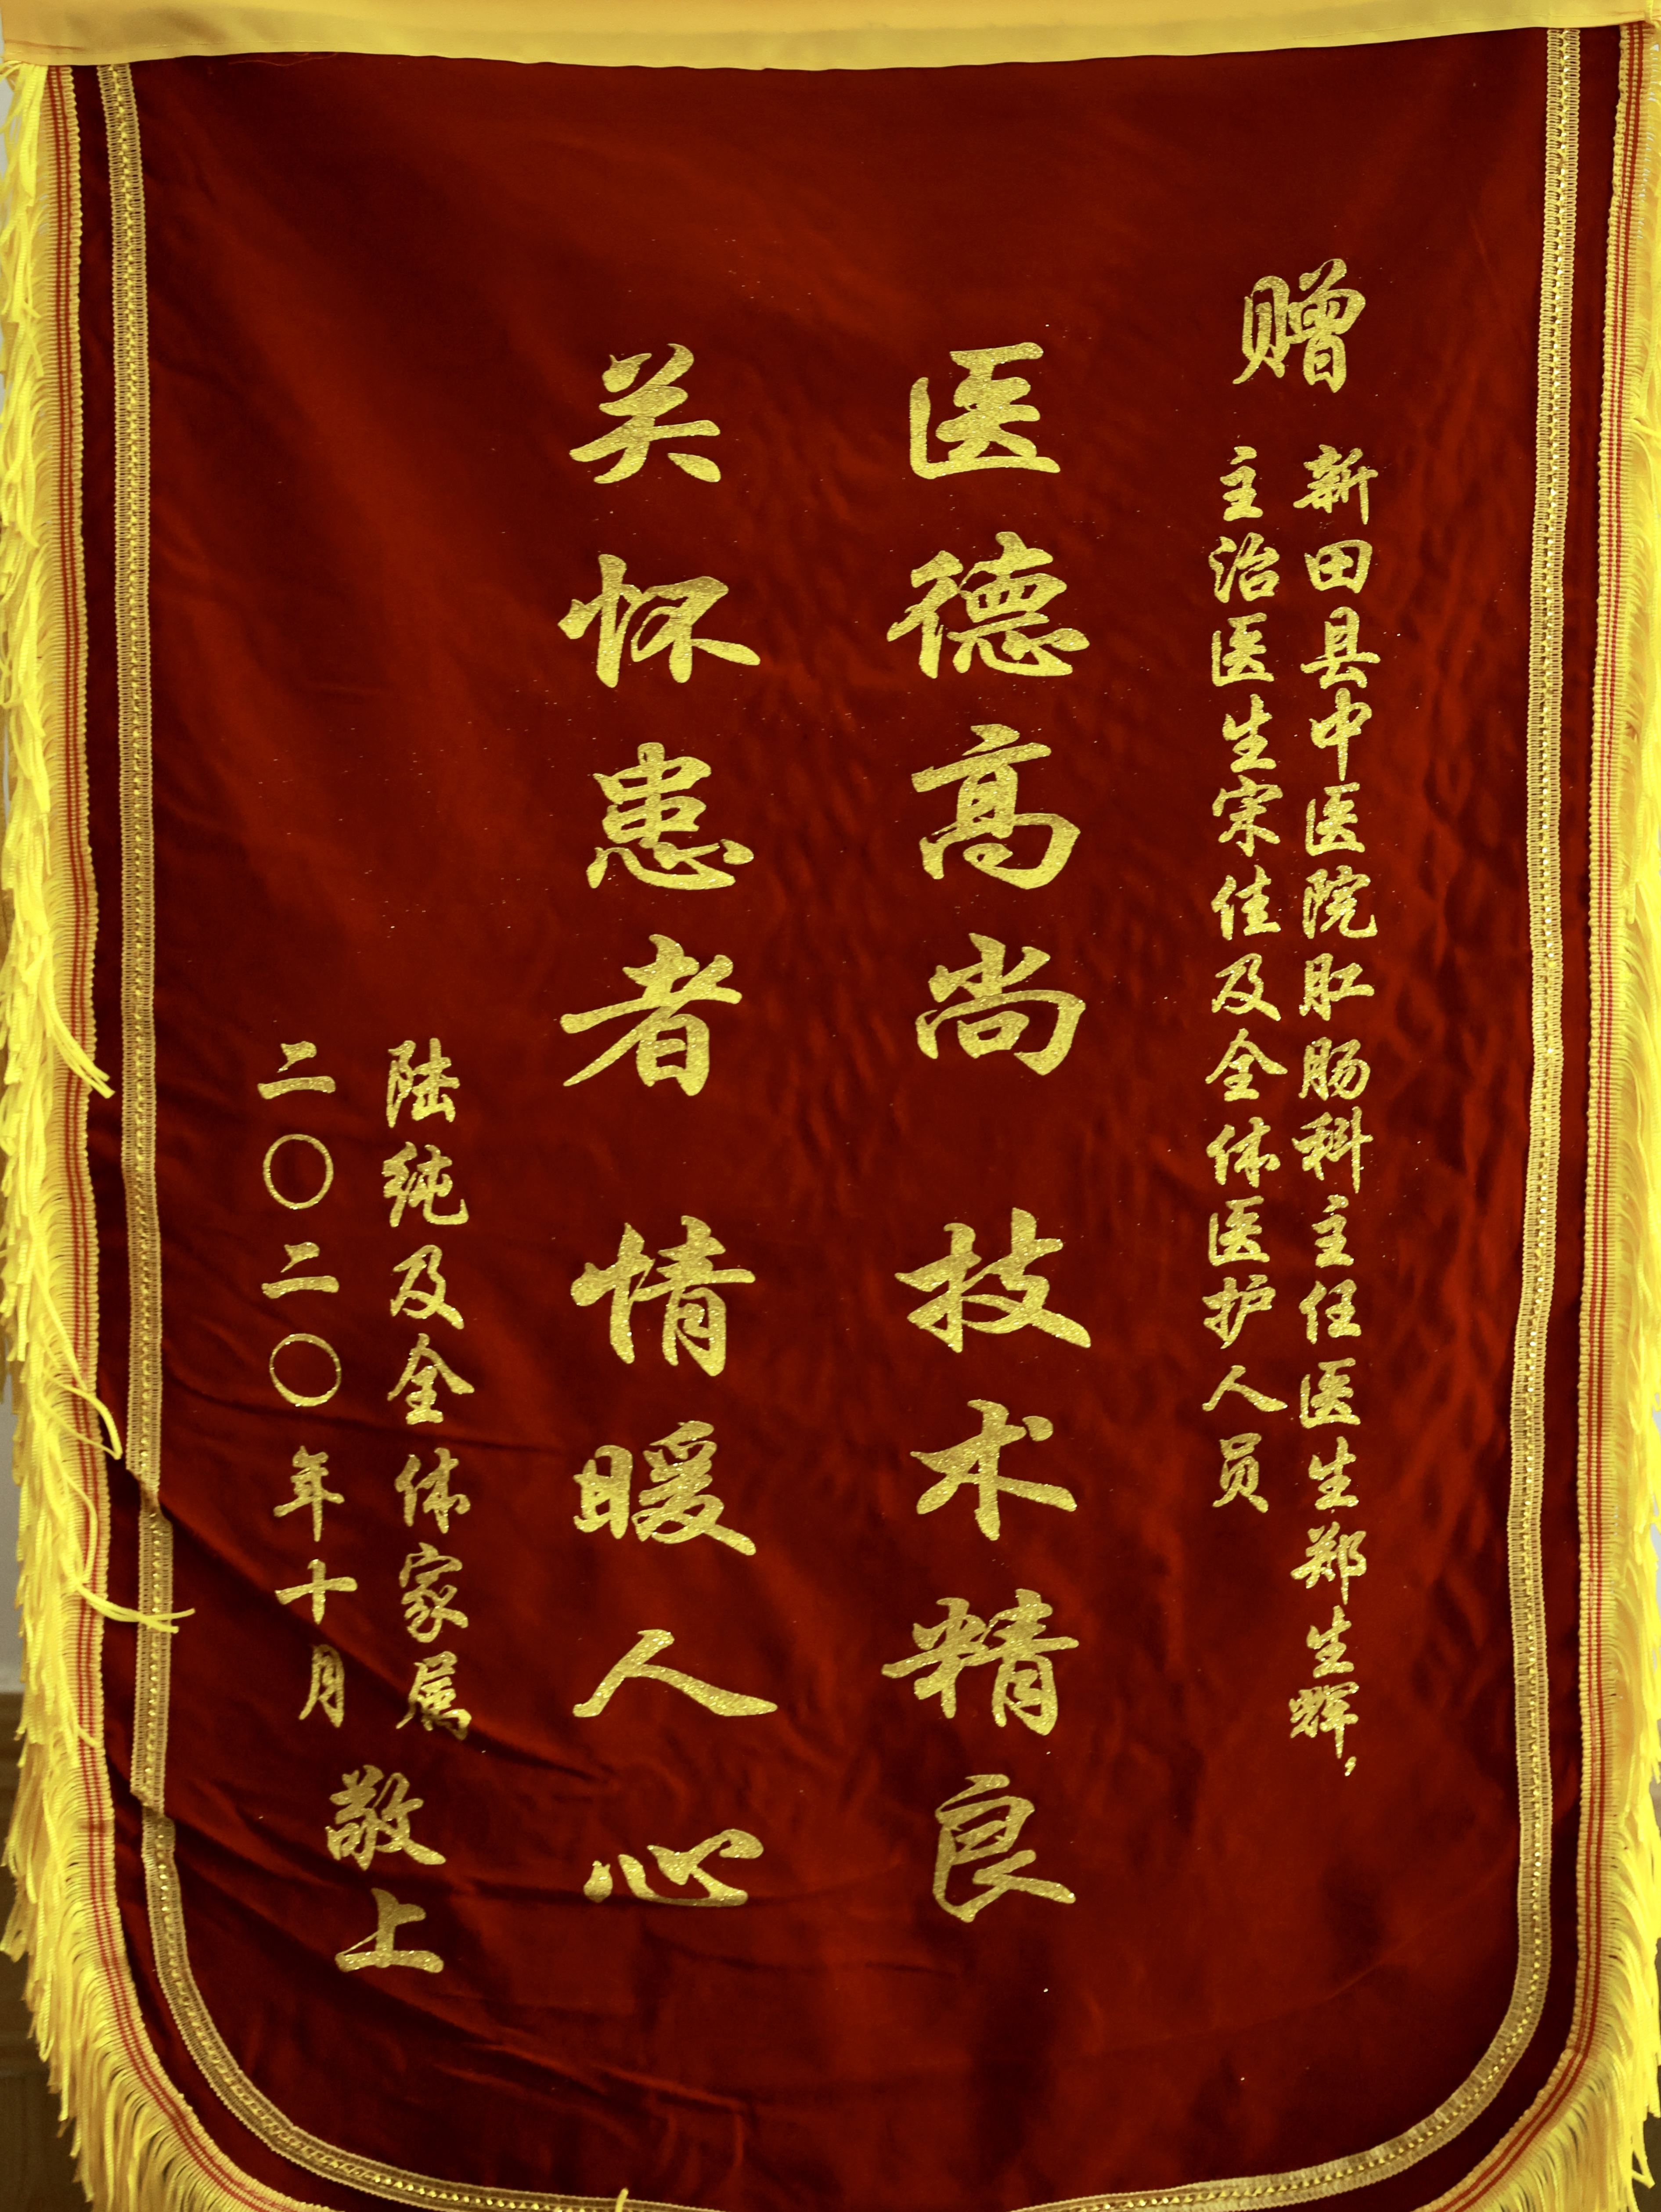 赠
新田县中医院肛肠科主任医生郑生辉,
主治医生宋佳及全体医护人员
医德高尚 技术精良
关怀患者 情暖人心
陆纯及全体家属
二〇二〇年十月
敬上